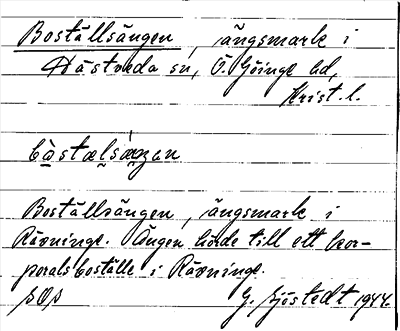 Boställsängen, ängsmark i
Hästveda sn, Ö. Göinge hd,
Krist. l.
bo̲stælsæŋen
Boställsängen, ängsmark i
Rävninge. Ängen hörde till ett kor-
poralsboställe i Rävninge.
SOS G. Sjöstedt 1944.